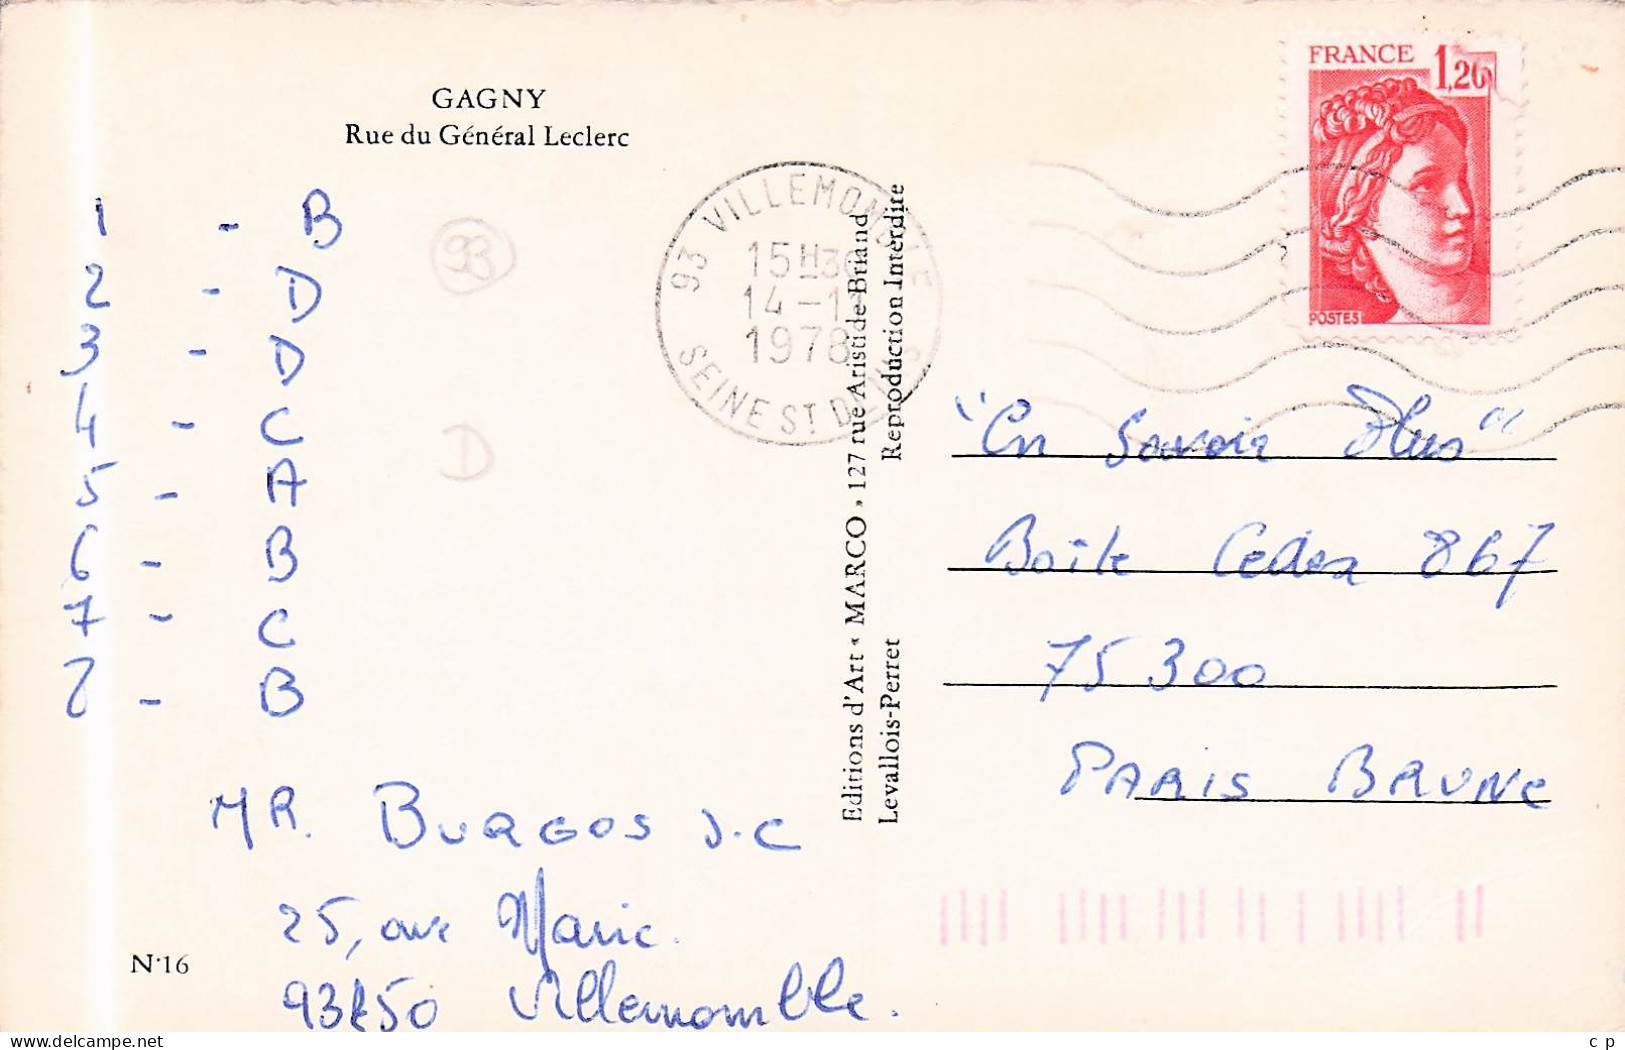 GAGNY
Rue du Général Leclerc
FRANCE 1,20
POSTES
93 VILLEMOMBLE
15H30
14-1
1978
SEINE ST DENIS
1 - B
2 - D
3 - D
4 - C
5 - A
6 - B
7 - C
8 - B
93
D
MR. BURGOS J.C
25, ave Marie.
93250 Villemomble.
N°16
Editions d'Art « MARCO » 127 rue Aristide Briand
Levallois-Perret Reproduction Interdite
"En Savoir Plus"
Boîte Cedex 867
75300
PARIS BRUNE
delcampe.net
c p